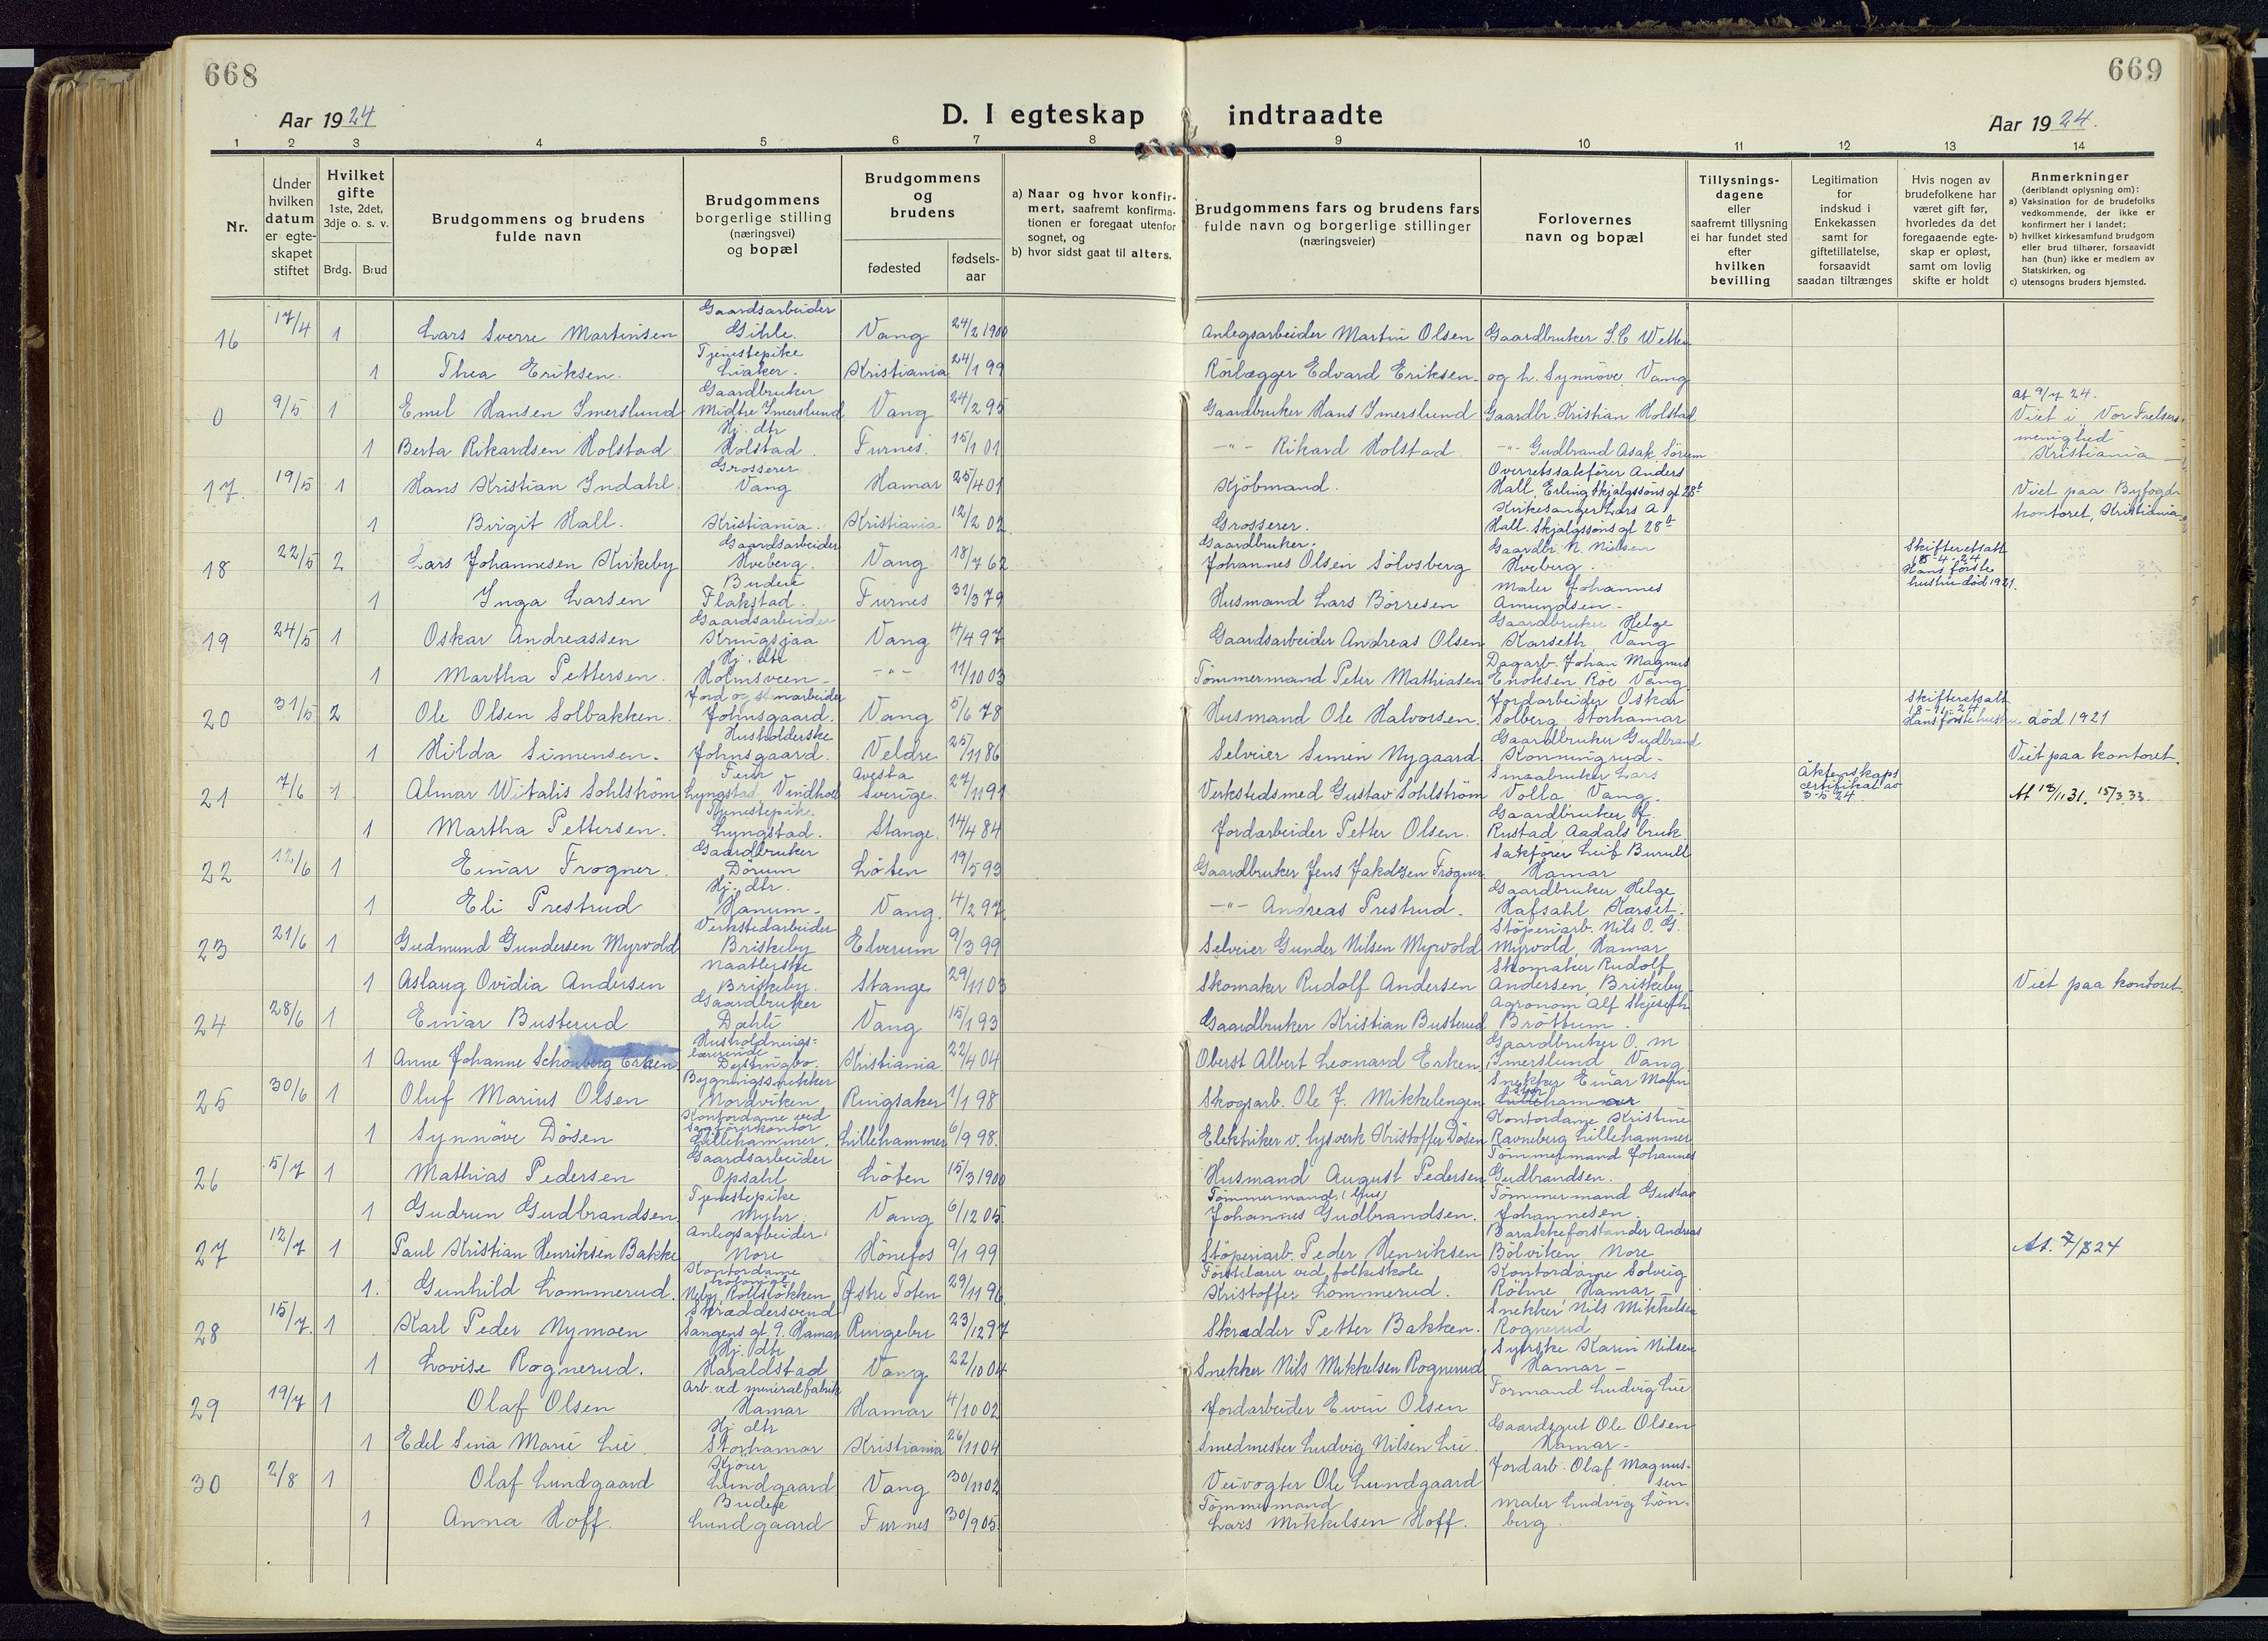 668
669
Aar 1924
D. I egteskap indtraadte
Aar 1924.
1 2 3 4 5 6 7 8 9 10 11 12 13 14
Nr.
Under hvilken datum er egteskapet stiftet
Hvilket gifte 1ste, 2det, 3dje o. s. v.
Brdg. Brud
Brudgommens og brudens fulde navn
Brudgommens borgerlige stilling (næringsvei) og bopæl
Brudgommens og brudens
fødested
fødselsaar
a) Naar og hvor konfirmert, saafremt konfirmationen er foregaat utenfor sognet, og
b) hvor sidst gaat til alters.
Brudgommens fars og brudens fars fulde navn og borgerlige stillinger (næringsveier)
Forlovernes navn og bopæl
Tillysningsdagene eller saafremt tillysning ei har fundet sted efter hvilken bevilling
Legitimation for indskud i Enkekassen samt for giftetillatelse, forsaavidt saadan tiltrænges
Hvis nogen av brudefolkene har været gift før, hvorledes da det foregaaende egteskap er opløst, samt om lovlig skifte er holdt
Anmerkninger (deriblandt oplysning om):
a) Vaksination for de brudefolks vedkommende, der ikke er konfirmert her i landet;
b) hvilket kirkesamfund brudgom eller brud tilhører, forsaavidt han (hun) ikke er medlem av Statskirken, og
c) utensogns bruders hjemsted.
16 17/4 1 Lars Sverre Martinsen Gaardsarbeider Gihle. Vang 24/2 1900 Anlegsarbeider Martin Olsen Gaardbruker S.C Wetten
1 Thea Eriksen. Tjenestepike Liaker. Kristiania 24/1 99 Rörlægger Edvard Eriksen og h. Synnöve Vang
0 9/5 1 Emil Hansen Imerslund Gaardbruker Midtre Imerslund Vang 24/2 95 Gaardbruker Hans Imerslund Gaardbr. Kristian Holstad At 9/7 24. Viet i Vor Frelsers
1 Berta Rikardsen Holstad Hj. dtr Holstad. Furnes. 15/1 01 -"- Rikard Holstad -"- Gudbrand Asak Sörum menighed Kristiania
17. 19/5 1 Hans Kristian Indahl. Grosserer Vang Hamar 25/4 01 Kjöbmand. Overretssakförer Anders Hall, Erling Skjalgssöns gt 28 b Viet paa Byfogd-
1 Birgit Hall. Kristiania. Kristiania 12/2 02 Grosserer. Kirkesanger Lars A Hall. Skjalgssöns gt 28 b kontoret, Kristiania
18 22/5 2 Lars Johannesen Kirkeby Gaardsarbeider Hveberg. Vang 18/7 62 Gaardbruker. Johannes Olsen Sölvsberg Gaardbr. N. Nielsen Hveberg. Skifteretsatt. 5-4-24 Hans förste hustru död 1921.
1 Inga Larsen Budeie Flakstad. Furnes 31/3 79 Husmand Lars Börresen Maler Johannes Amundsen
19 24/5 1 Oskar Andreassen Gaardsarbeider Kringsjaa Vang 4/4 97 Gaardsarbeider Andreas Olsen Gaardbruker Helge Karseth, Vang
1 Martha Pettersen. Hj. dtr Holmsveen -"- 11/10 03 Tömmermand Peter Mathiasen Dagarb. Johan Magnus Enoksen Roe Vang
20 31/5 2 Ole Olsen Solbakken. Jord og stenarbeider Johnsgaard. Vang 5/6 78 Husmand Ole Halvorsen. Jordarbeider Oskar Solberg Storhamar Skifteretsatt 18-11-24 Hans förste hustru död 1921
1 Hilda Simensen. Husholderske Johnsgaard. Veldre 25/11 86 Selveier Simen Nygaard Gaardbruker Gudbrand Konningrud. Viet paa kontoret.
21 7/6 1 Almar Witalis Sohlström Lyngstad Vindhol Avesta Sverige. 27/11 91 Verkstedsmed Gustav Sohlström Smaabruker Lars Volla Vang. Äktenskaps certifikat av 3-5-24. At 13/11 31. 15/3 33.
1 Martha Pettersen. Tjenestepike Lyngstad. Stange. 14/4 84 Jordarbeider Petter Olsen. Gaardbruker H. Rustad Aadals bruk.
22 12/6 1 Einar Frogner. Gaardbruker Dörum Löten 19/5 93 Gaardbruker Jens Jakobsen Frogner. Sakförer Leif Burull Hamar
1 Eli Prestrud Hj. dtr. Hanum Vang. 4/2 97 -"- Andreas Prestrud. Gaardbruker Helge Hafsahl Karset.
23 21/6 1 Gudmund Gundersen Myrvold Verkstedarbeider Briskeby Elverum 9/3 99 Selveier Gunder Nilsen Myrvold Stöperiarb. Nils O. G. Myrvold, Hamar
1 Aslaug Ovidia Andersen Naatlerske Briskeby. Stange 29/11 03 Skomaker Rudolf Andersen Skomaker Rudolf Andersen, Briskeby Viet paa kontoret
24 28/6 1 Einar Busterud Gaardbruker Dæhli Vang 15/1 93 Gaardbruker Kristian Busterud Agronom Alf Skjeseth Bröttum.
1 Anne Johanne Schönberg Erken Husholdnings-lærerinde Dystingbo. Kristiania 22/4 04 Oberst Albert Leonard Erken Gaardbruker O. M Imerslund Vang
25 30/6 1 Oluf Marius Olsen Bygningssnekker Nordviken Ringsaker 1/1 98 Skogsarb. Ole J. Mikkelengen Snekker Einar Molin Lillehammer
1 Synnöve Dösen Kontordame ved sagförerkontor Lillehammer. Lillehammer 6/9 98. Elektriker v. lysverk Kristoffer Dösen Kontordame Kristine Ravneberg Lillehammer
26 5/7 1 Mathias Pedersen Gaardsarbeider Opsahl Löten 15/3 1900 Husmand August Pedersen Tömmermand Johannes Gudbrandsen.
1 Gudrun Gudbrandsen Tjenestepike Myhr. Vang 6/12 05 Tömmermand Johannes Gudbrandsen. Tömmermand Gustav Johannesen.
27 12/7 1 Paul Kristian Henriksen Bakke Anlegsarbeider Nore Hönefos 9/1 99 Stöperiarb. Peder Henriksen Barakkeforstander Andreas Bölviken Nore At. 7/8 24
1. Gunhild Lommerud. Kontordame Östre Toten 29/11 96 Förstelærer ved folkeskole Kristoffer Lommerud. Kontordame Solveig Röhne Hamar
28 15/7. 1 Karl Peder Nymoen Skræddersvend Sangens gt. 9. Hamar Ringebu 23/12 97 Skrædder Petter Bakken. Snekker Nils Mikkelsen Rognerud
1 Lovise Rognerud. Hj. dtr Haraldstad Vang 22/10 04 Snekker Nils Mikkelsen Rognerud Syerske Karin Nilsen Hamar
29 19/7 1 Olaf Olsen Arb. ved mineralfabrik Hamar Hamar 4/10 02 Jordarbeider Ewin Olsen Formand Ludvig Lie
1 Edel Sina Marie Lie Hj dtr Storhamar Kristiania 26/11 04 Smedmester Ludvig Nilsen Lie. Gaardsgut Ole Olsen Hamar
30 2/8 1 Olaf Lundgaard Kjörer Lundgaard Vang 30/11 02 Veivogter Ole Lundgaard Jordarb. Olaf Magnussen
1 Anna Hoff. Budeie Lundgaard Furnes 30/9 05. Tömmermand Lars Mikkelsen Hoff. Maler Ludvig Lönberg.